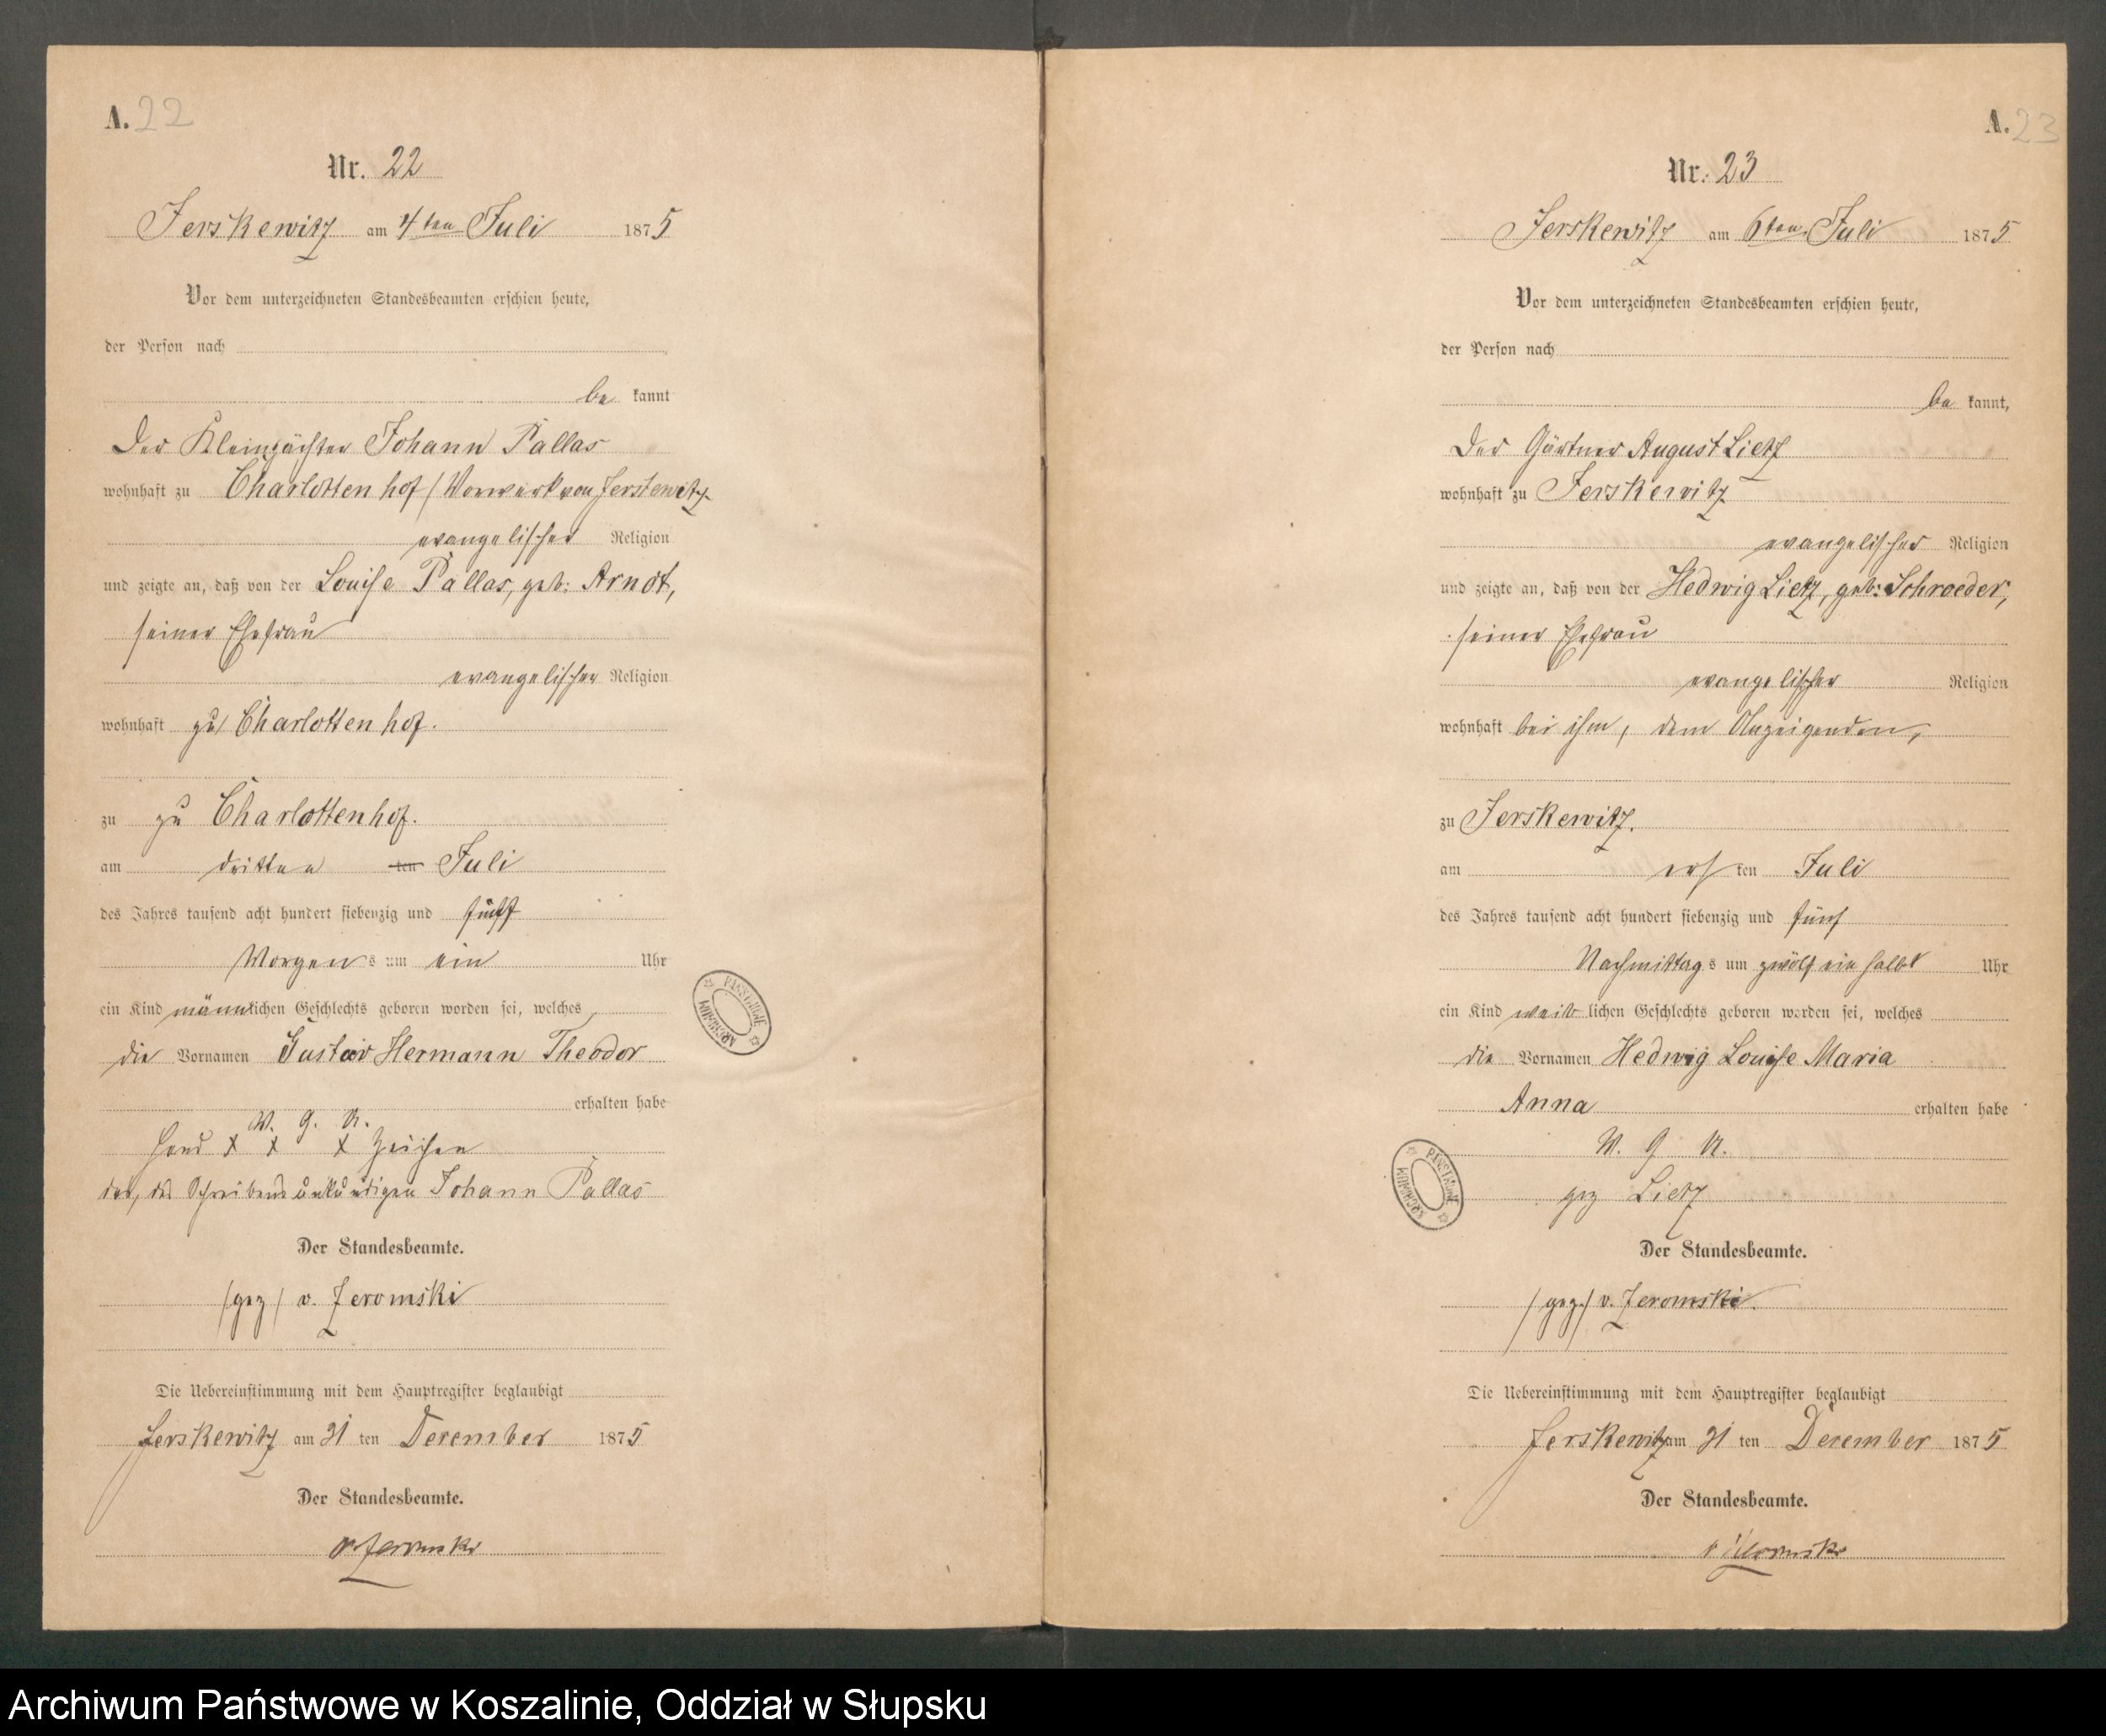 A. 22
Nr. 22
Jerskewitz am 4ten Juli 1875
Vor dem unterzeichneten Standesbeamten erschien heute,
der Person nach
be kannt
Der Kleinpächter Johann Pallas
wohnhaft zu Charlotten hof / Vorwerk von Jerskewitz
evangelischer Religion
und zeigte an, daß von der Louise Pallas, geb: Arndt,
seiner Ehefrau
evangelischer Religion
wohnhaft zu Charlotten hof.
zu zu Charlottenhof.
am dritten ten Juli
des Jahres tausend acht hundert siebenzig und fünf
Morgens um ein Uhr
ein Kind männlichen Geschlechts geboren worden sei, welches
die Vornamen Gustav Hermann Theodor
erhalten habe
V. g. U.
Hand x x x Zeichen
des, des Schreibens unkundigen Johann Pallas
Der Standesbeamte.
/gez/ v. Jeromski
Die Uebereinstimmung mit dem Hauptregister beglaubigt
Jerskewitz am 31 ten December 1875
Der Standesbeamte.
v. Jeromski
ARCHIWUM PAŃSTWOWE
A. 23
Nr. 23
Jerskewitz am 6ten Juli 1875
Vor dem unterzeichneten Standesbeamten erschien heute,
der Person nach
be kannt,
Der Gärtner August Lietz
wohnhaft zu Jerskewitz
evangelischer Religion
und zeigte an, daß von der Hedwig Lietz, geb: Schroeder,
seiner Ehefrau
evangelischer Religion
wohnhaft bei ihm, dem Anzeigenden,
zu Jerskewitz.
am ersten Juli
des Jahres tausend acht hundert siebenzig und fünf
Nachmittags um zwölf ein halb Uhr
ein Kind weiblichen Geschlechts geboren worden sei, welches
die Vornamen Hedwig Louise Maria
Anna erhalten habe
V. g U.
gez Lietz
Der Standesbeamte.
/gez./ v. Jeromski.
Die Uebereinstimmung mit dem Hauptregister beglaubigt
Jerskewitz am 31 ten December 1875
Der Standesbeamte.
v Jeromski
ARCHIWUM PAŃSTWOWE
Archiwum Państwowe w Koszalinie, Oddział w Słupsku